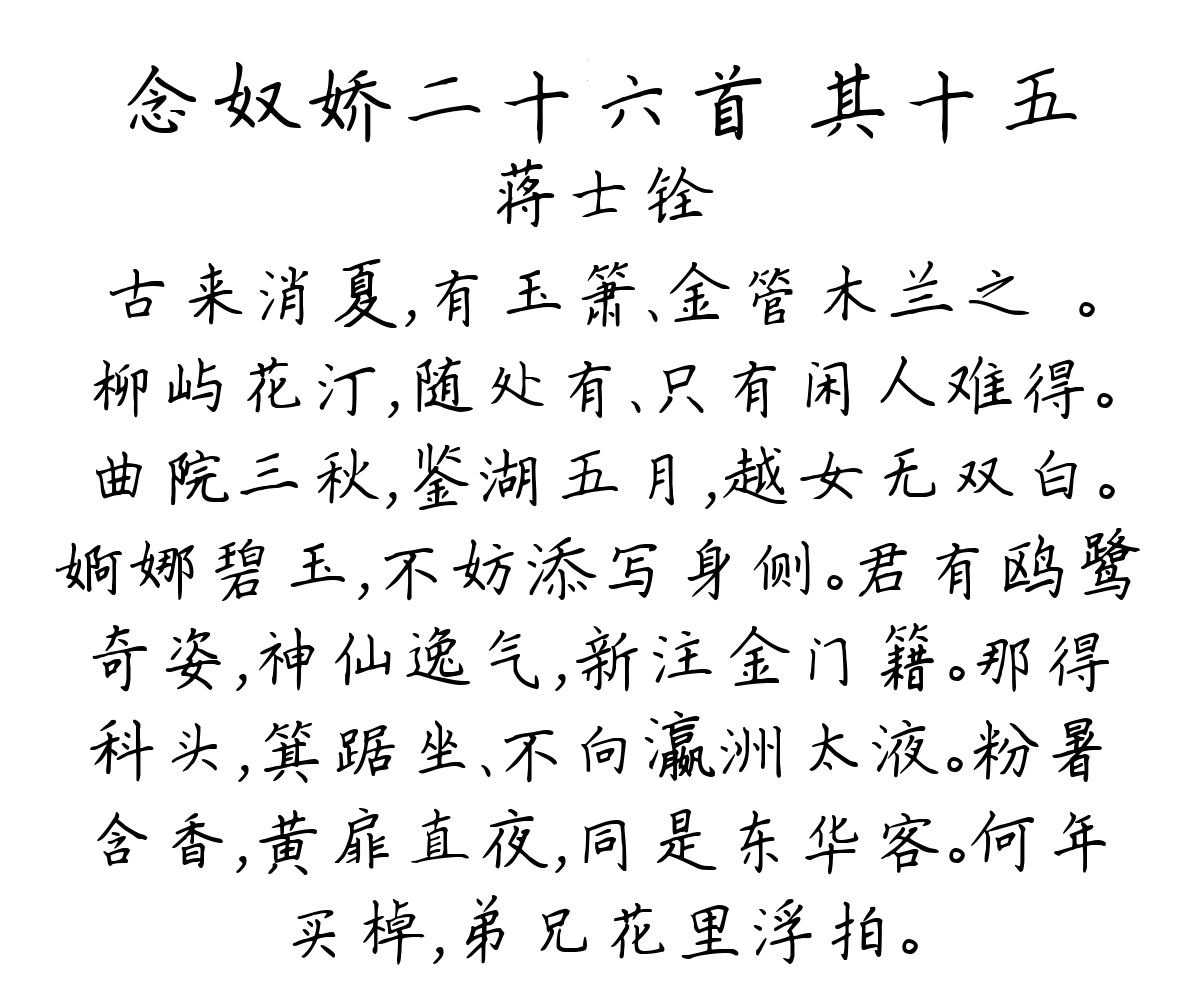 念奴娇二十六首 其十五
蒋士铨
古来消夏,有玉箫、金管木兰之 。
柳屿花汀,随处有、只有闲人难得。
曲院三秋,鉴湖五月,越女无双白。
婀娜碧玉,不妨添写身侧。君有鸥鹭
奇姿,神仙逸气,新注金门籍。那得
科头,箕踞坐、不向瀛洲太液。粉暑
含香,黄扉直夜,同是东华客。何年
买棹,弟兄花里浮拍。